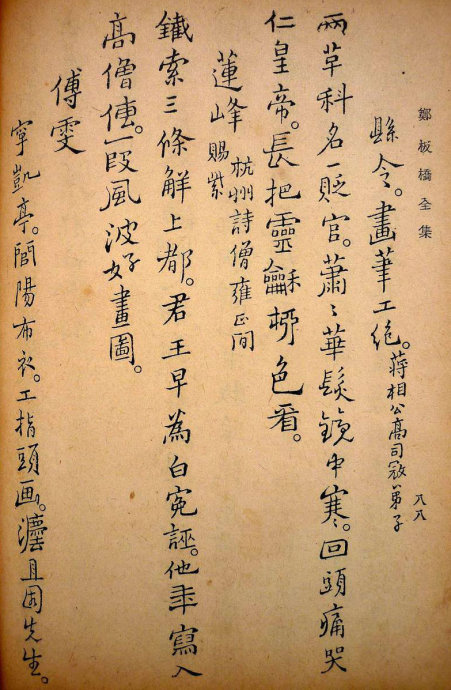 鄭板橋全集
八八
縣令。畫筆工絕。蔣相公高司寇弟子
兩革科名一貶官。蕭〻華髮鏡中寒。回頭痛哭
仁皇帝。長把靈龢栁色看。
蓮峰 杭州詩僧雍正間賜紫
鐵索三條解上都。君王早為白冤誣。他年寫入
高僧傳。一段風波好畫圖。
傅雯
字凱亭。閭陽布衣。工指頭画。灋且園先生。